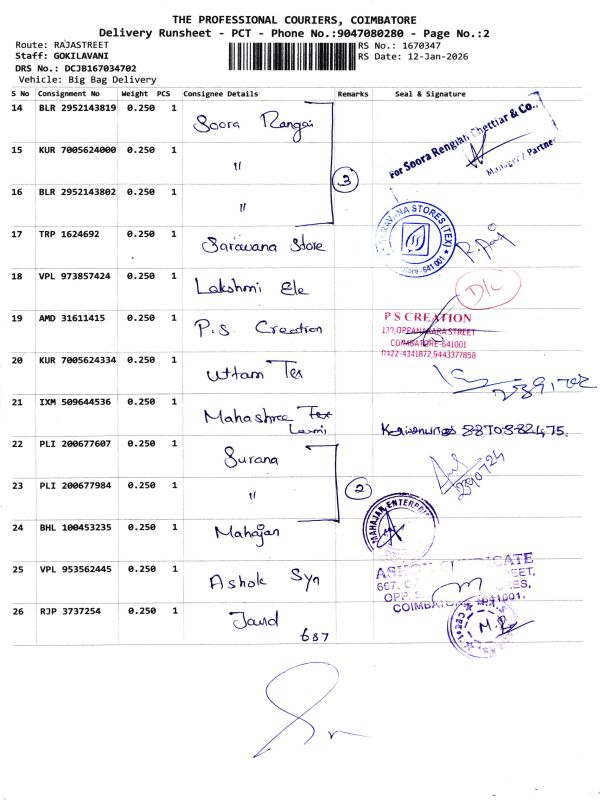 THE PROFESSIONAL COURIERS, COIMBATORE
Delivery Runsheet - PCT - Phone No.:9047080280 - Page No.:2
Route: RAJASTREET
RS No.: 1670347
Staff: GOKILAVANI
RS Date: 12-Jan-2026
DRS No.: DCJB167034702
Vehicle: Big Bag Delivery
S No Consignment No Weight PCS Consignee Details Remarks Seal & Signature
14 BLR 2952143819 0.250 1 Soora Rangai
For Soora Rengiah Chettiar & Co..,
Manager / Partner
15 KUR 7005624000 0.250 1 "
3
16 BLR 2952143802 0.250 1 "
17 TRP 1624692 0.250 1 Saravana Store
SARAVANA STORES (TEX)
641 001
18 VPL 973857424 0.250 1 Lakshmi Ele D/L
19 AMD 31611415 0.250 1 P.S Creation
P S CREATION
139,OPPANAKARA STREET
COIMBATORE-641001
0422-4341872,9443377858
20 KUR 7005624334 0.250 1 Uttam Tex
21 IXM 509644536 0.250 1 Mahashree Tex
Laxmi
22 PLI 200677607 0.250 1 Surana
23 PLI 200677984 0.250 1 "
2
24 BHL 100453235 0.250 1 Mahajan
MAHAJAN ENTERPRI
25 VPL 953562445 0.250 1 Ashok Syn
ASHOK SYNDICATE
OPP.
COIMBATORE 641001.
26 RJP 3737254 0.250 1 Jaud
687